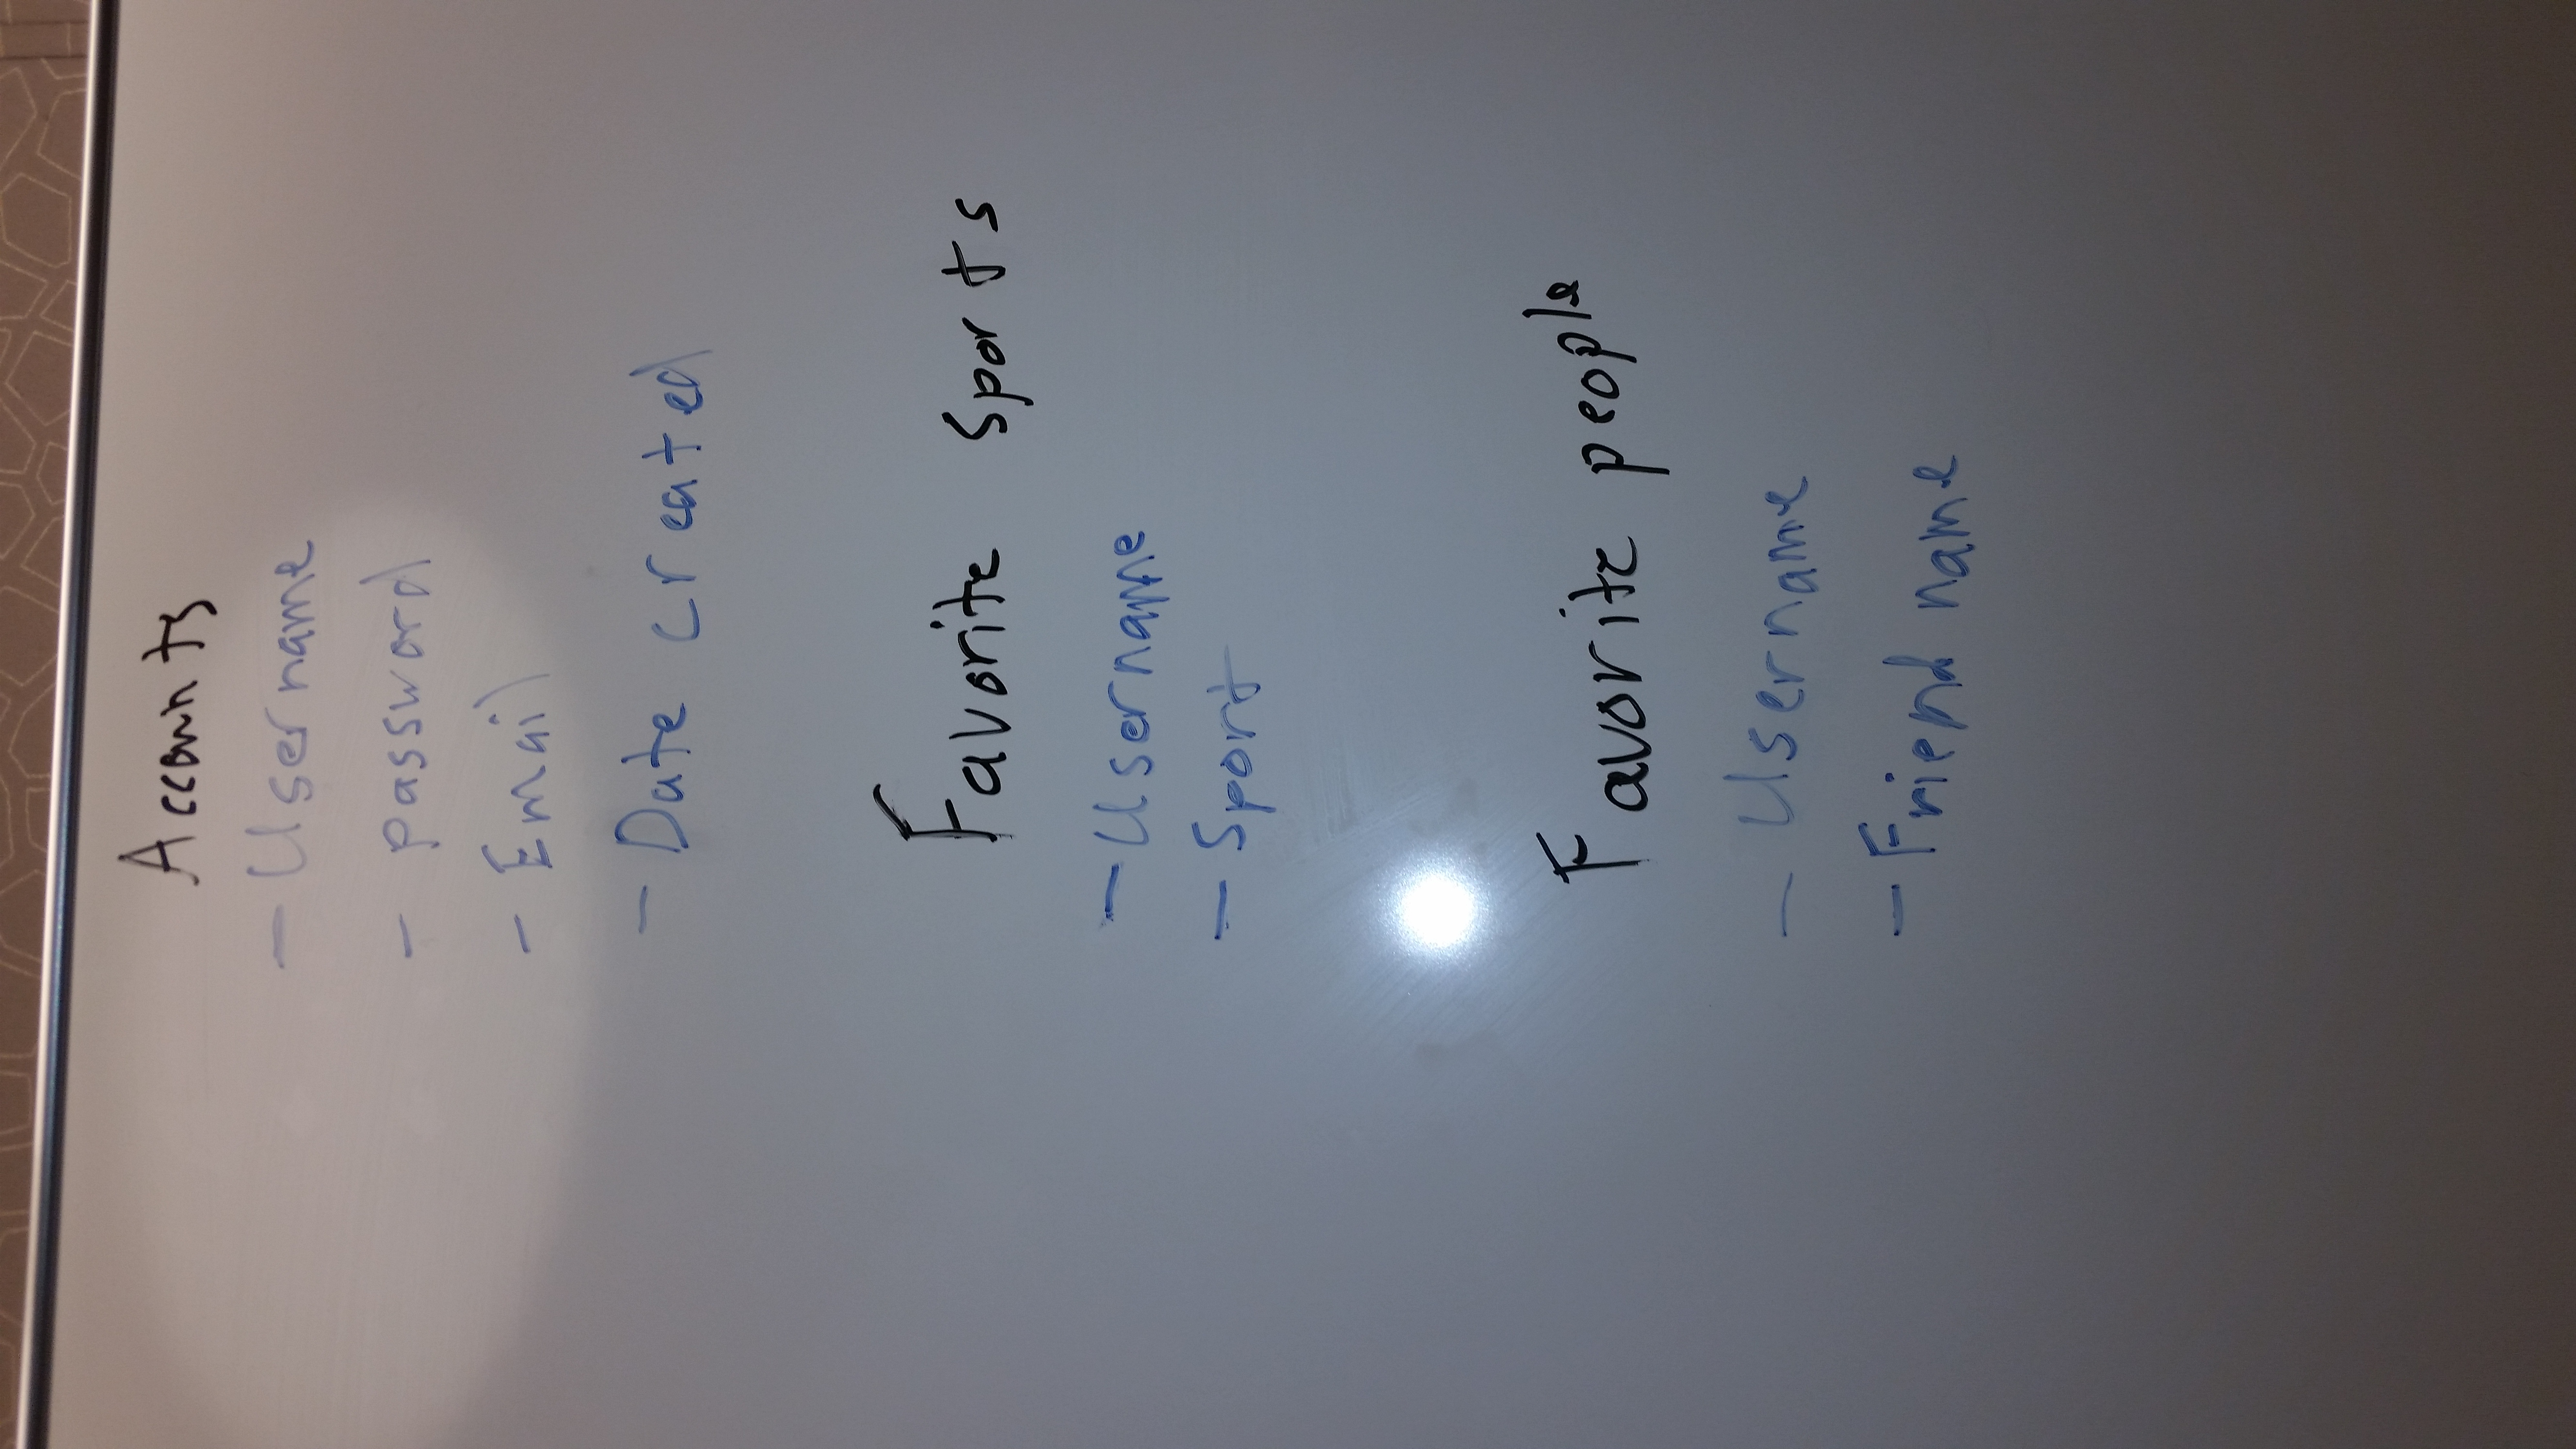 Accounts
- Username
- password
- Email
- Date created
Favorite sports
- Username
- Sport
Favorite people
- Username
- Friend name